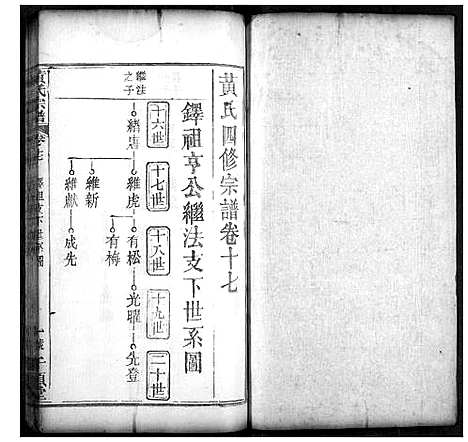 黃氏四修宗譜卷十七
鐸祖亨公繼法支下世系圖
十六世
十七世
十八世
十九世
二十世
繼法
之子
緒唐
維虎
有松
光曜
先登
有梅
維新
維獻
成先